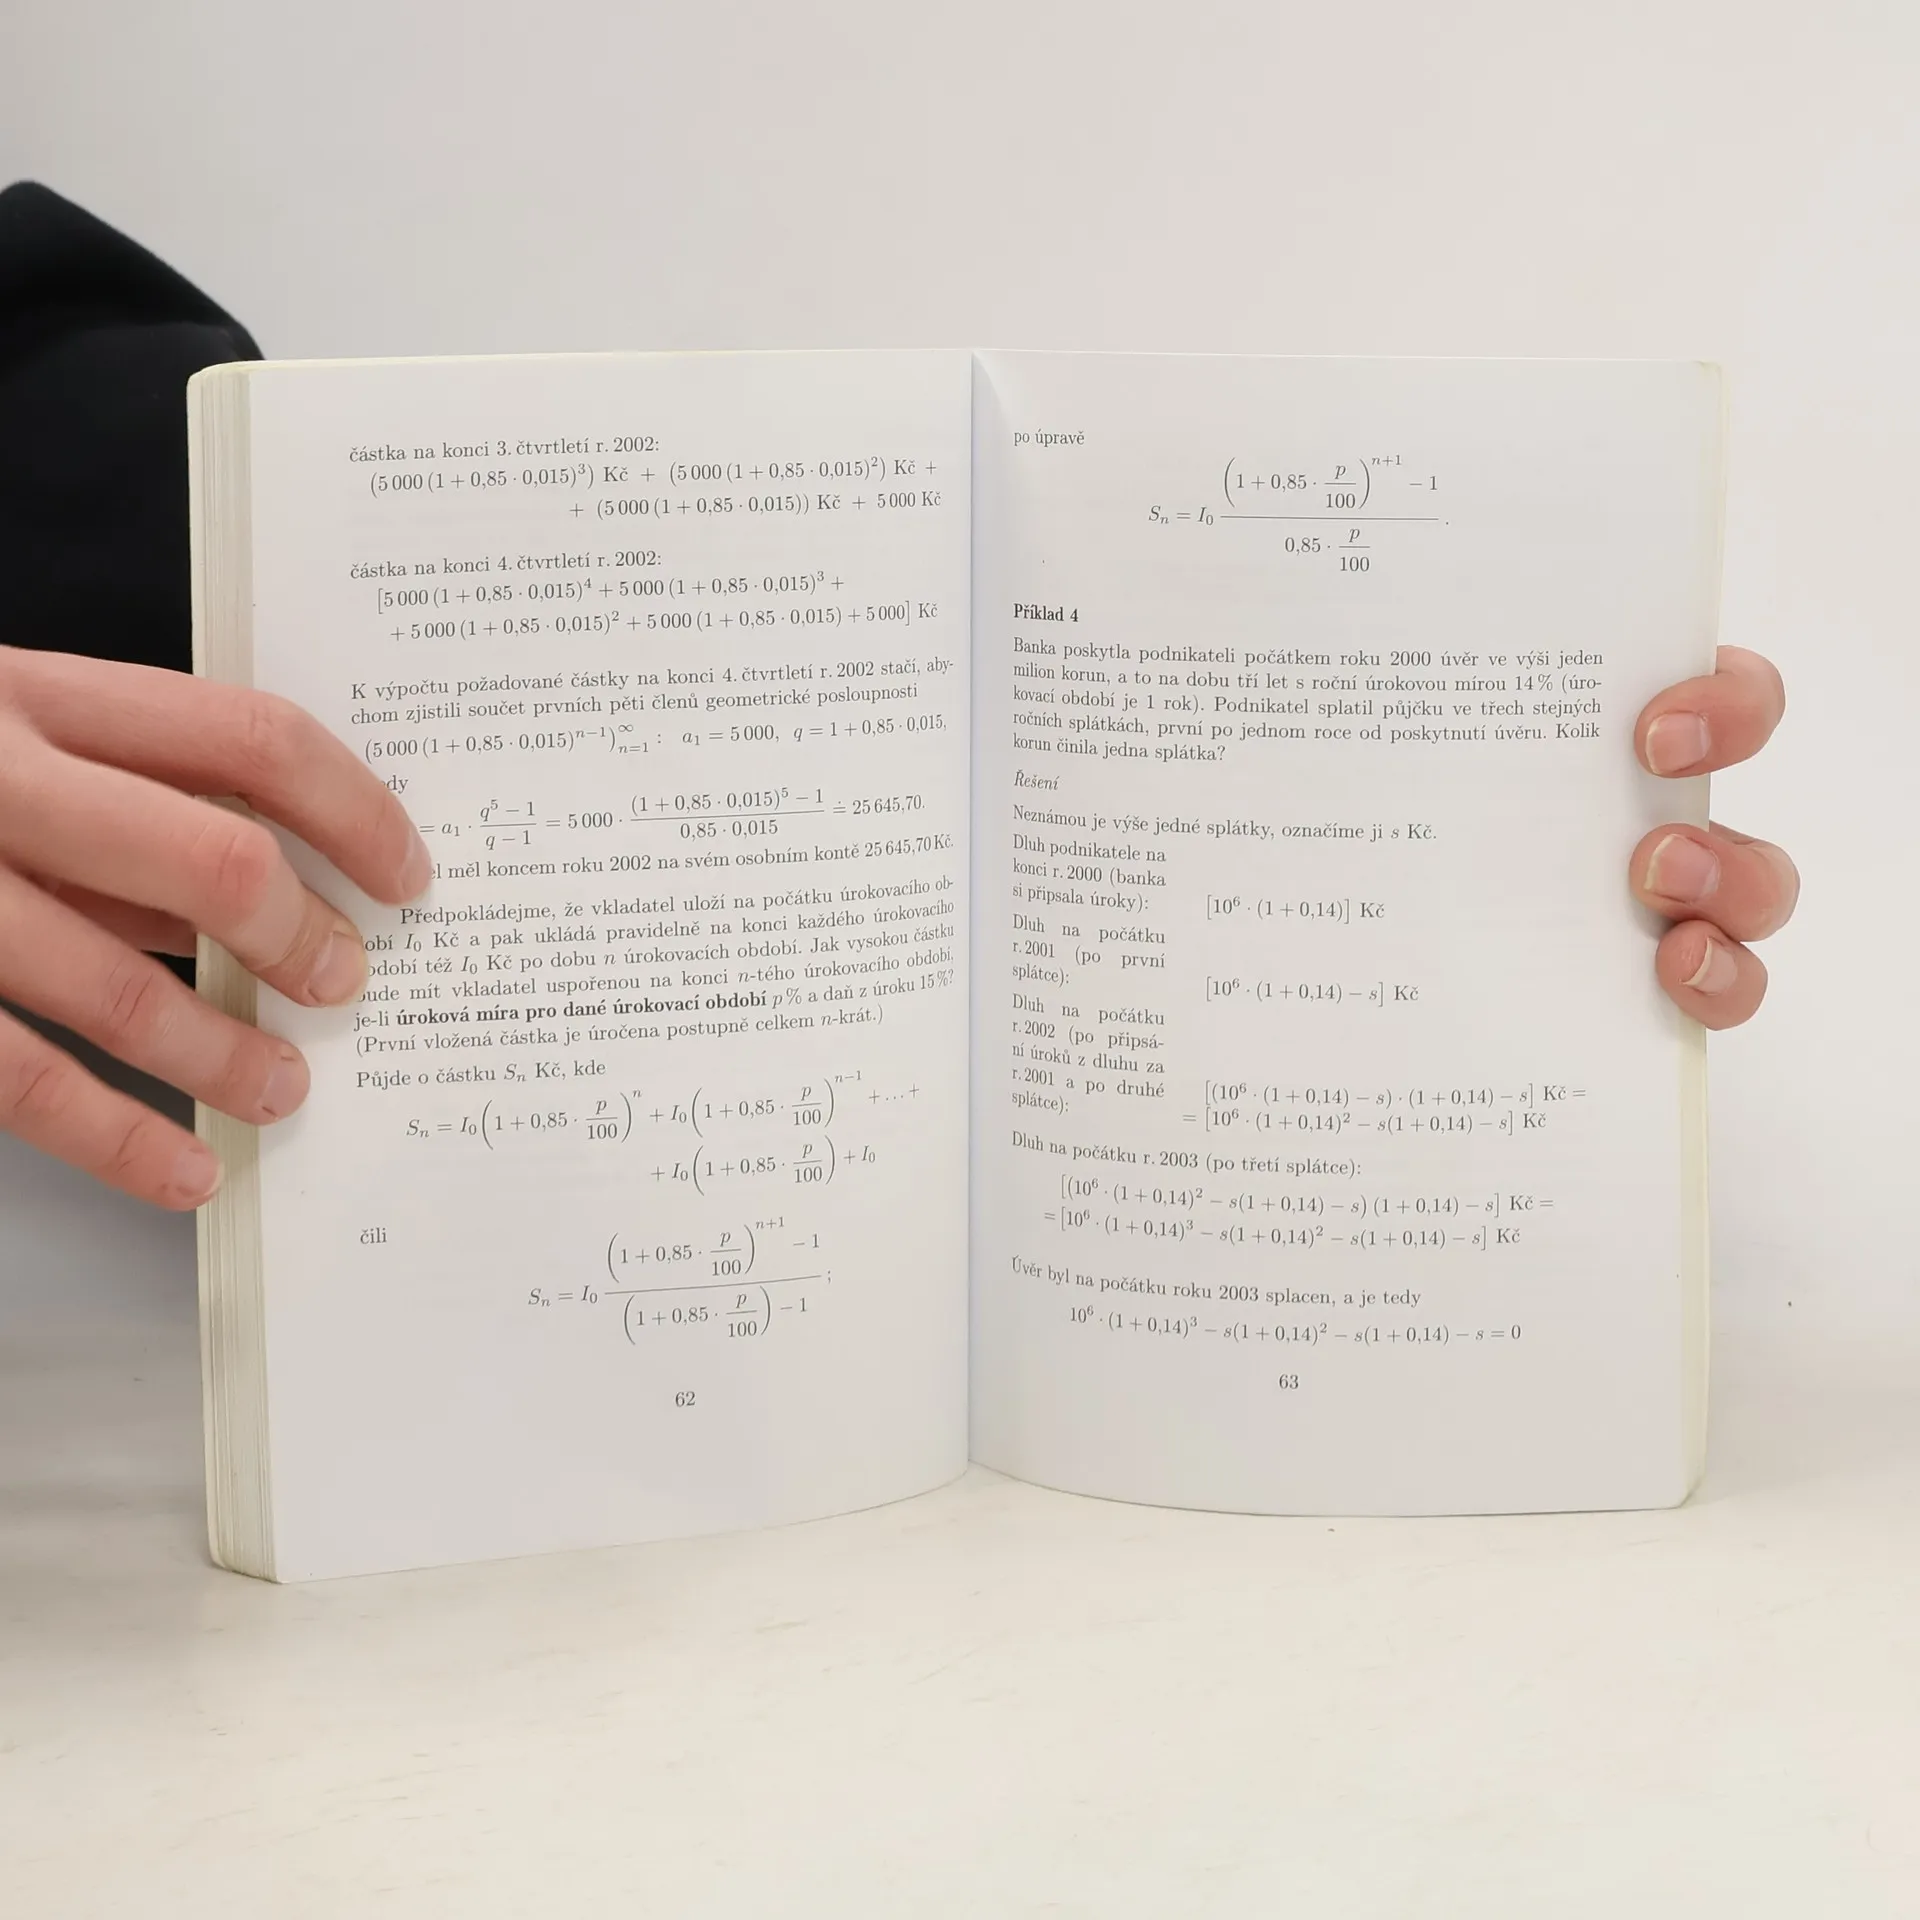 částka na konci 3. čtvrtletí r. 2002:
(5 000 (1 + 0,85 · 0,015)³) Kč + (5 000 (1 + 0,85 · 0,015)²) Kč +
+ (5 000 (1 + 0,85 · 0,015)) Kč + 5 000 Kč
částka na konci 4. čtvrtletí r. 2002:
[5 000 (1 + 0,85 · 0,015)⁴ + 5 000 (1 + 0,85 · 0,015)³ +
+ 5 000 (1 + 0,85 · 0,015)² + 5 000 (1 + 0,85 · 0,015) + 5 000] Kč
K výpočtu požadované částky na konci 4. čtvrtletí r. 2002 stačí, aby-
chom zjistili součet prvních pěti členů geometrické posloupnosti
(5 000 (1 + 0,85 · 0,015)ⁿ⁻¹)∞ₙ₌₁ : a₁ = 5 000, q = 1 + 0,85 · 0,015,
dy
= a₁ · (q⁵ − 1)/(q − 1) = 5 000 · ((1 + 0,85 · 0,015)⁵ − 1)/(0,85 · 0,015) ≐ 25 645,70.
l měl koncem roku 2002 na svém osobním kontě 25 645,70 Kč.
Předpokládejme, že vkladatel uloží na počátku úrokovacího ob-
obí I₀ Kč a pak ukládá pravidelně na konci každého úrokovacího
dobí též I₀ Kč po dobu n úrokovacích období. Jak vysokou částku
ude mít vkladatel uspořenou na konci n-tého úrokovacího období,
je-li úroková míra pro dané úrokovací období p % a daň z úroku 15 %?
(První vložená částka je úročena postupně celkem n-krát.)
Půjde o částku Sₙ Kč, kde
Sₙ = I₀ (1 + 0,85 · p/100)ⁿ + I₀ (1 + 0,85 · p/100)ⁿ⁻¹ + ... +
+ I₀ (1 + 0,85 · p/100) + I₀
čili
Sₙ = I₀ ((1 + 0,85 · p/100)ⁿ⁺¹ − 1)/((1 + 0,85 · p/100) − 1) ;
62
po úpravě
Sₙ = I₀ ((1 + 0,85 · p/100)ⁿ⁺¹ − 1)/(0,85 · p/100) .
Příklad 4
Banka poskytla podnikateli počátkem roku 2000 úvěr ve výši jeden
milion korun, a to na dobu tří let s roční úrokovou mírou 14 % (úro-
kovací období je 1 rok). Podnikatel splatil půjčku ve třech stejných
ročních splátkách, první po jednom roce od poskytnutí úvěru. Kolik
korun činila jedna splátka?
Řešení
Neznámou je výše jedné splátky, označíme ji s Kč.
Dluh podnikatele na
konci r. 2000 (banka
si připsala úroky): [10⁶ · (1 + 0,14)] Kč
Dluh na počátku
r. 2001 (po první
splátce): [10⁶ · (1 + 0,14) − s] Kč
Dluh na počátku
r. 2002 (po připsá-
ní úroků z dluhu za
r. 2001 a po druhé
splátce): [(10⁶ · (1 + 0,14) − s) · (1 + 0,14) − s] Kč =
= [10⁶ · (1 + 0,14)² − s(1 + 0,14) − s] Kč
Dluh na počátku r. 2003 (po třetí splátce):
[(10⁶ · (1 + 0,14)² − s(1 + 0,14) − s) (1 + 0,14) − s] Kč =
= [10⁶ · (1 + 0,14)³ − s(1 + 0,14)² − s(1 + 0,14) − s] Kč
Úvěr byl na počátku roku 2003 splacen, a je tedy
10⁶ · (1 + 0,14)³ − s(1 + 0,14)² − s(1 + 0,14) − s = 0
63